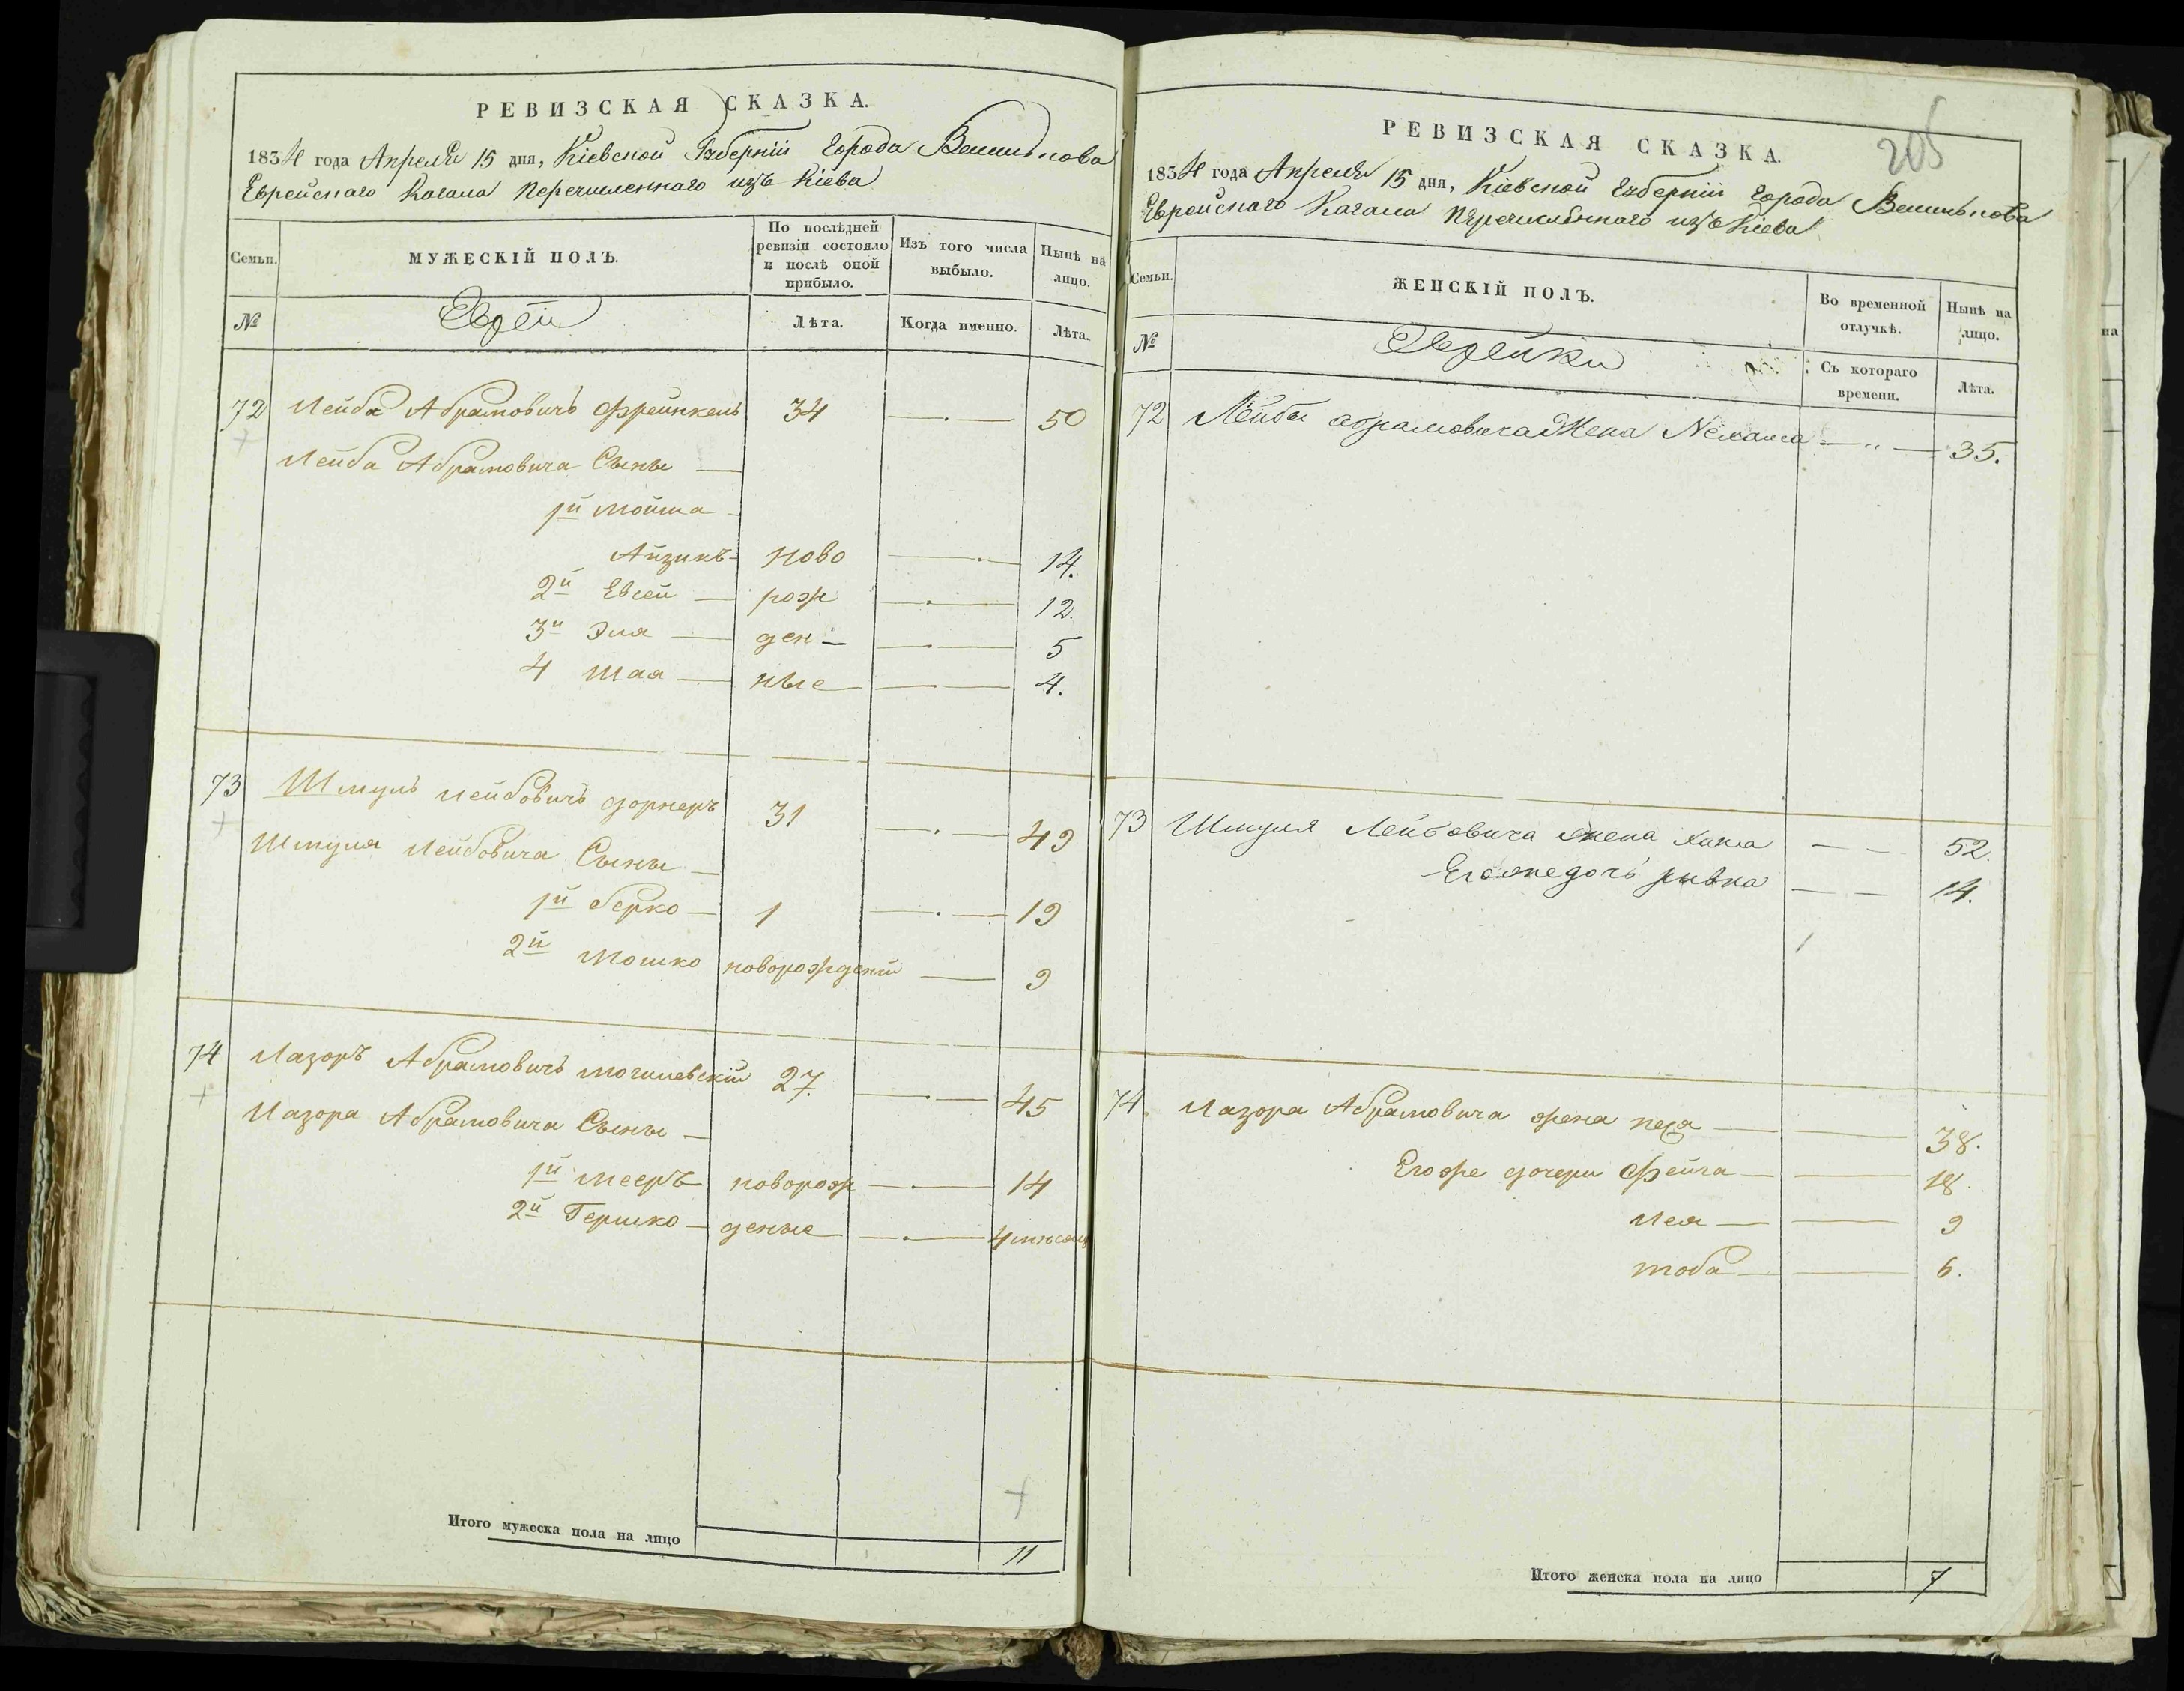 РЕВИЗСКАЯ СКАЗКА.
1834 года Апреля 15 дня, Кіевской Губерніи Города Василькова
Еврейскаго Кагала перечисленнаго изъ Кіева
Семьи.
МУЖЕСКІЙ ПОЛЪ.
По послѣдней ревизіи состояло и послѣ оной прибыло.
Изъ того числа выбыло.
Нынѣ на лицо.
№
Евреи
Лѣта.
Когда именно.
Лѣта.
72 Лейба Абрамовичъ Френкель 34 — 50
Лейба Абрамовича Сыны —
1й Мойша
Айзикъ — ново — 14.
2й Евсей — рож — 12.
3й Эля — ден — 5
4 Шая — ные — 4.
73 Шмуль Лейбовичъ дорнеръ 31 — 49
Шмуля Лейбовича Сыны —
1й берко — 1 — 19
2й Мошко новорожденій — 9
74 Лазоръ Абрамовичъ могилевскій 27. — 45
Лазора Абрамовича Сыны —
1й Мееръ новорож — 14
2й Гершко — деные — 4 мѣсяц
Итого мужеска пола на лицо 11
205
РЕВИЗСКАЯ СКАЗКА.
1834 года Апреля 15 дня, Кіевской Губерніи Города Василькова
Еврейскаго Кагала перечисленнаго изъ Кіева
Семьи.
ЖЕНСКІЙ ПОЛЪ.
Во временной отлучкѣ.
Нынѣ на лицо.
№
Еврейки
Съ котораго времени.
Лѣта.
72 Лейбы абрамовича Жена Нехама — „ — 35.
73 Шмуля Лейбовича жена хана — — 52.
Его же дочь ривка — — 14.
74 Лазора Абрамовича жена песя — — 38.
Его же дочери Фейга — — 18.
Лея — — 9
тоба — — 6.
Итого женска пола на лицо 7